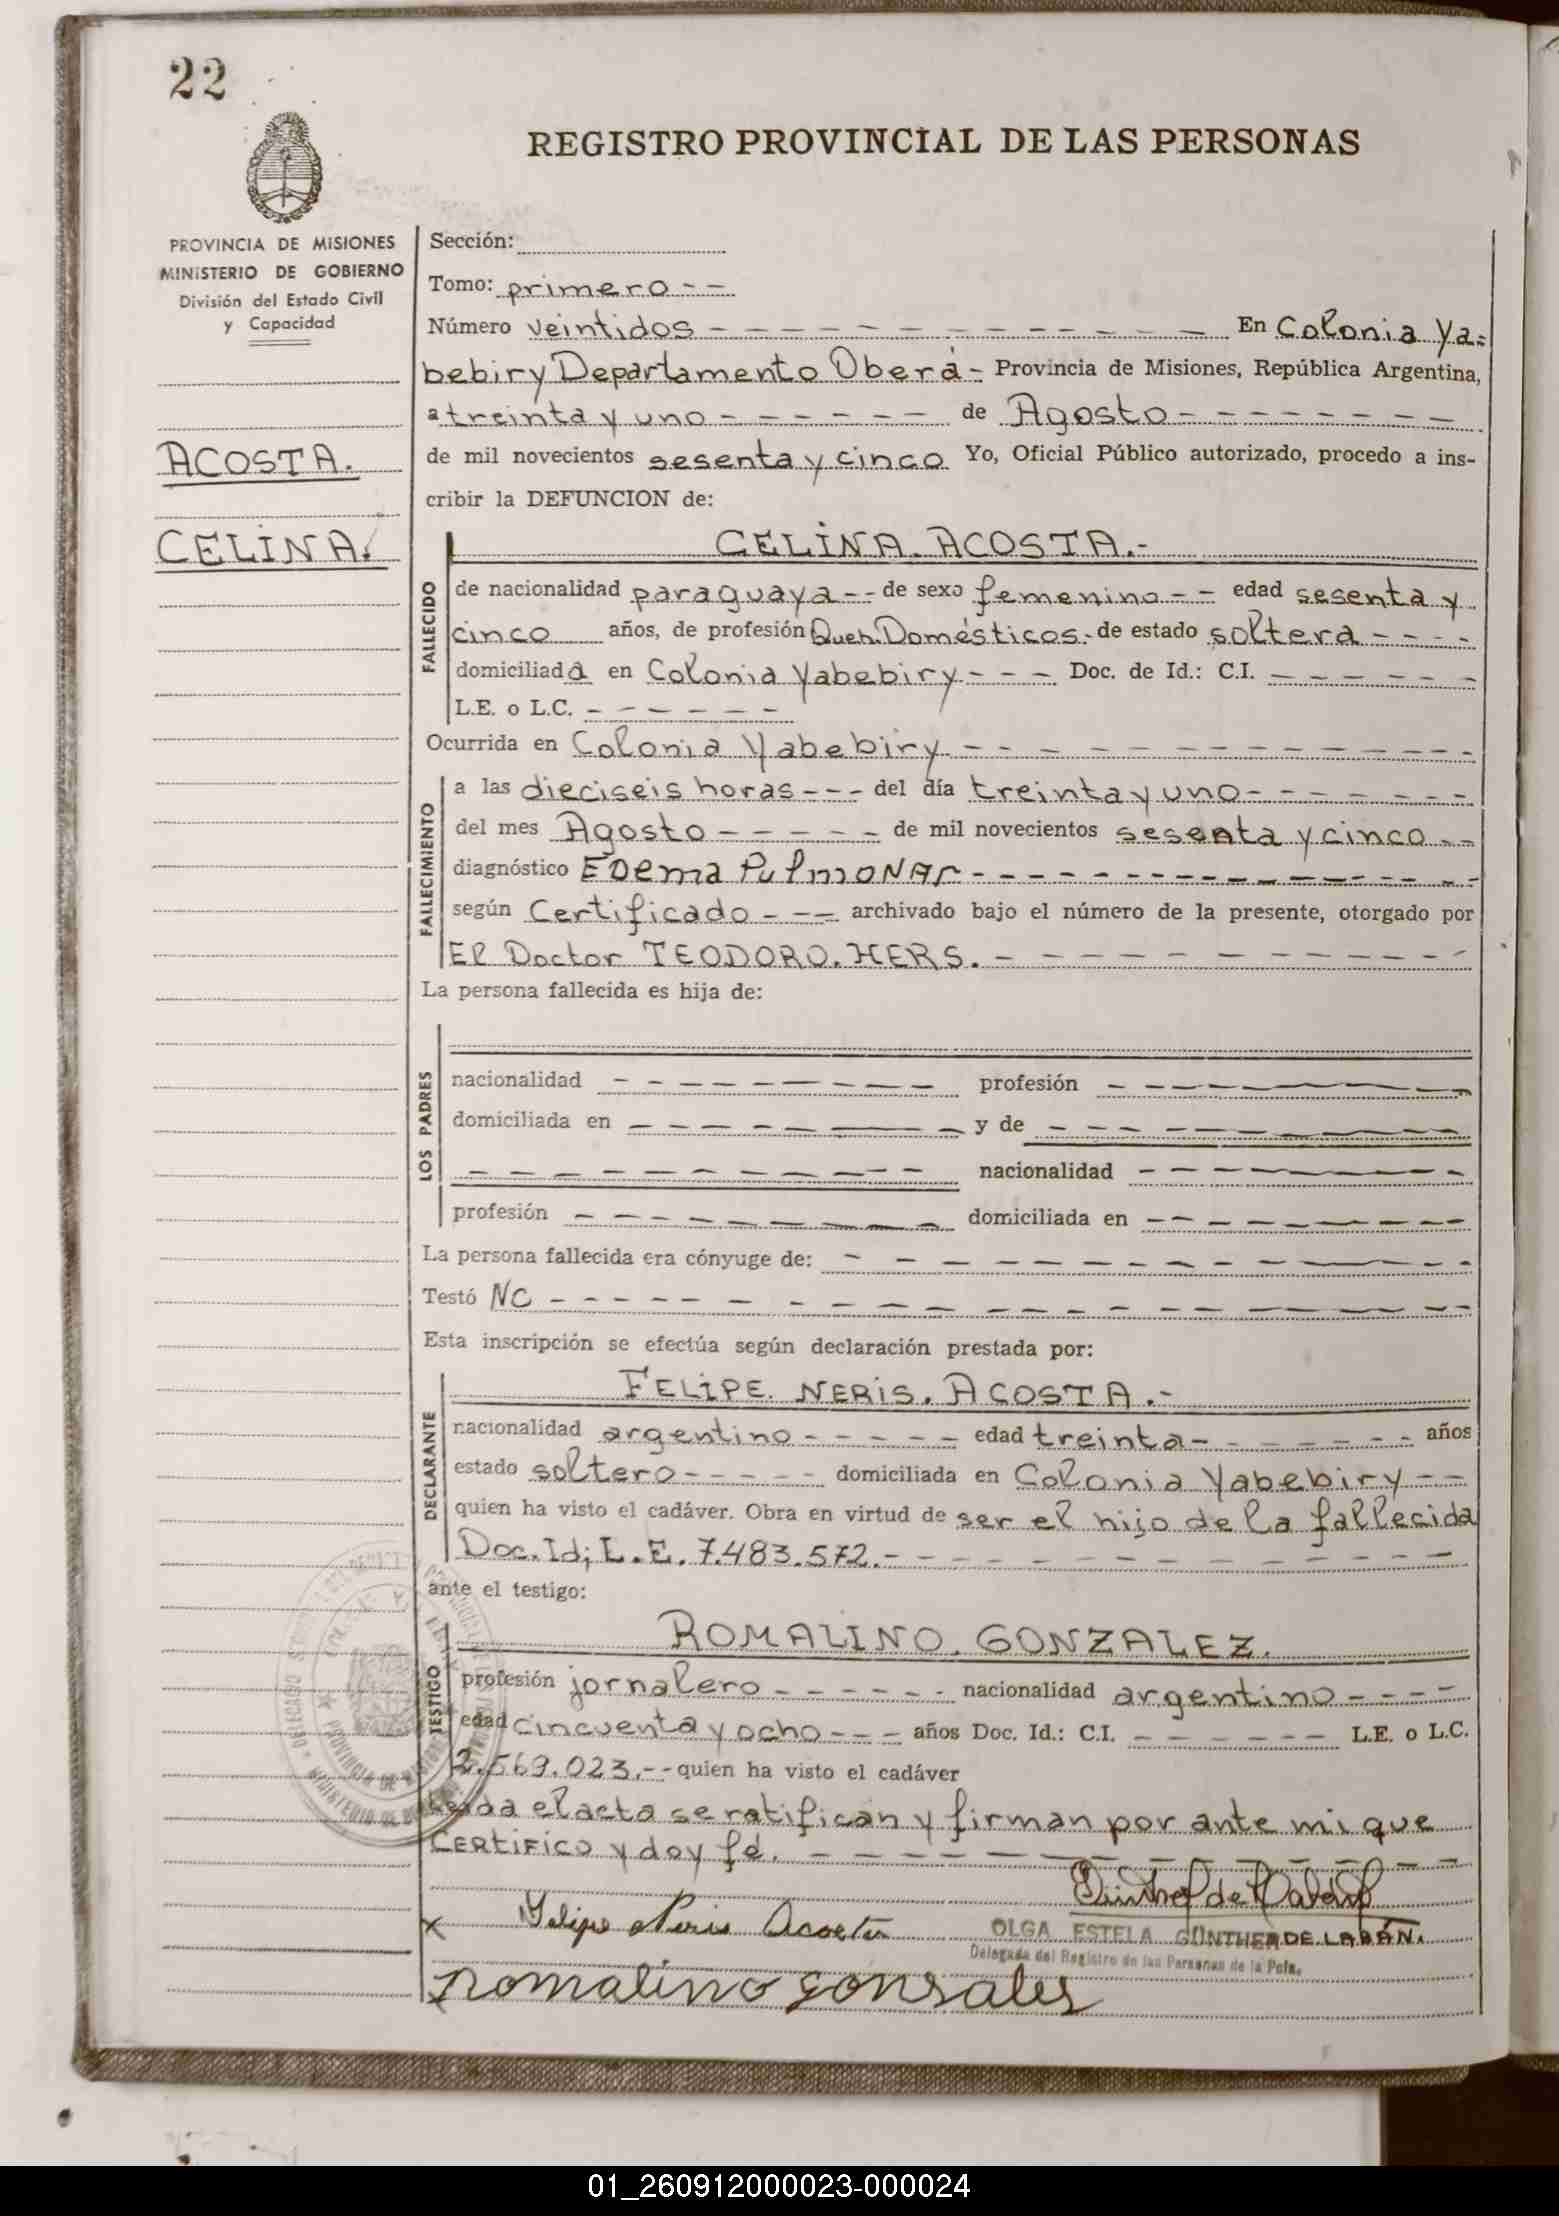 22
REGISTRO PROVINCIAL DE LAS PERSONAS
PROVINCIA DE MISIONES
MINISTERIO DE GOBIERNO
División del Estado Civil
y Capacidad
ACOSTA.
CELINA.
Sección:
Tomo: primero - -
Número veintidos - - - - - - - - - - - - En Colonia Ya=
bebiry Departamento Oberá - Provincia de Misiones, República Argentina,
a treinta y uno - - - - - - de Agosto - - - - - - - -
de mil novecientos sesenta y cinco Yo, Oficial Público autorizado, procedo a ins-
cribir la DEFUNCION de:
CELINA. ACOSTA.-
FALLECIDO
de nacionalidad paraguaya - - de sexo femenino - - edad sesenta y
cinco años, de profesión Queh. Domésticos.- de estado soltera - - - -
domiciliada en Colonia Yabebiry - - - Doc. de Id.: C.I. - - - - - -
L.E. o L.C. - - - - - -
Ocurrida en Colonia Yabebiry - - - - - - - - - - - -
FALLECIMIENTO
a las dieciseis horas - - - del día treinta y uno - - - - - - -
del mes Agosto - - - - - de mil novecientos sesenta y cinco - -
diagnóstico EDema PulmONAr - - - - - - - - - - - - -
según Certificado - - - archivado bajo el número de la presente, otorgado por
El Doctor TEODORO. HERS. - - - - - - - - - - -
La persona fallecida es hija de:
LOS PADRES
nacionalidad - - - - - - - - profesión - - - - - - - -
domiciliada en - - - - - - - y de - - - - - - - -
- - - - - - - - - - nacionalidad - - - - - - -
profesión - - - - - - - - domiciliada en - - - - - - - -
La persona fallecida era cónyuge de: - - - - - - - - - - - -
Testó NO - - - - - - - - - - - - - - - - -
Esta inscripción se efectúa según declaración prestada por:
FELIPE. NERIS. ACOSTA.-
DECLARANTE
nacionalidad argentino - - - - - edad treinta - - - - - - - años
estado soltero - - - - - domiciliada en Colonia Yabebiry - -
quien ha visto el cadáver. Obra en virtud de ser el hijo de la fallecida
Doc. Id; L.E. 7.483.572.- - - - - - - - - - - -
ante el testigo:
ROMALINO. GONZALEZ.
TESTIGO
profesión jornalero - - - - - - nacionalidad argentino - - - -
edad cincuenta y ocho - - - años Doc. Id.: C.I. - - - - - - L.E. o L.C.
2.569.023.- - quien ha visto el cadáver
Leida el acta se ratifican y firman por ante mi que
CERTIFICO y doy fé. - - - - - - - - - - -
Felipe Neris Acosta
OLGA ESTELA GÜNTHER DE LABÁN.
Delegada del Registro de las Personas de la Pcia.
romalino gonsales
01_260912000023-000024